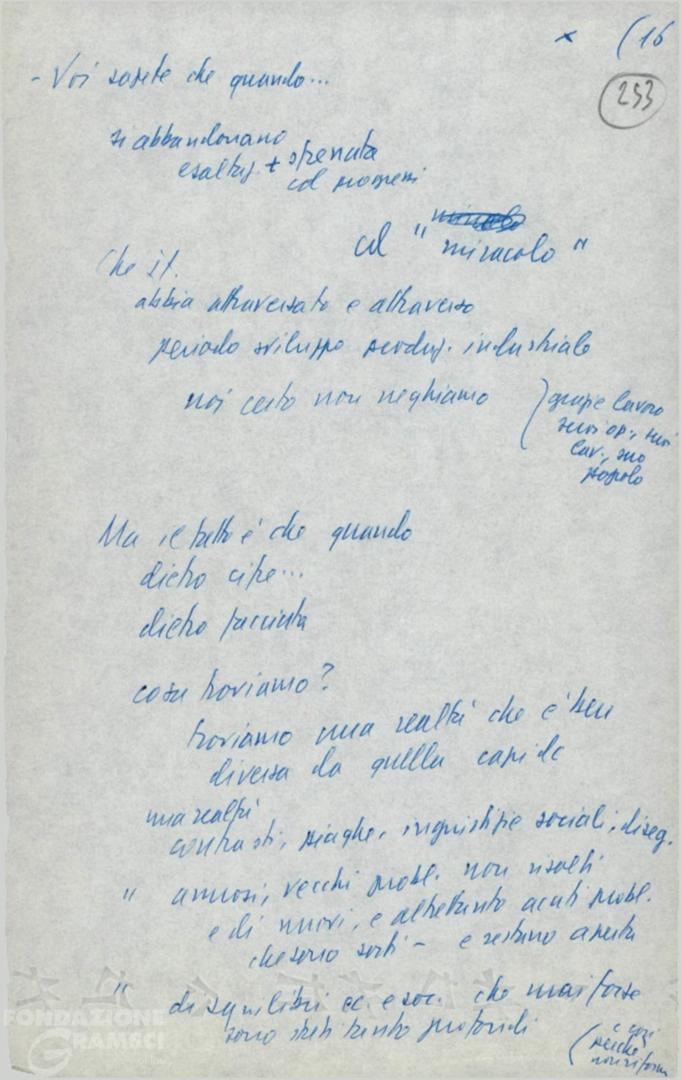 x (16
253
- Voi sapete che quando...
si abbandonano
esaltaz. + sfrenata
cd progressi
cd "miracolo"
Che It.
abbia attraversato e attraversa
periodo sviluppo produz. industriale
noi certo non neghiamo
(grazie lavoro
suoi op., suoi
lav., suo
popolo
Ma il fatto è che quando
dietro cifre...
dietro facciata
cosa troviamo?
troviamo una realtà che è ben
diversa da quella
una realtà
contrasti, piaghe, ingiustizie sociali, diseg.
" annosi, vecchi probl. non risolti
e di nuovi, e altrettanto acuti probl.
che sono sorti - e restano aperti
" disquilibri ec. e soc. che mai forse
sono stati tanto profondi
(e così
perché
non riforme
FONDAZIONE
GRAMSCI